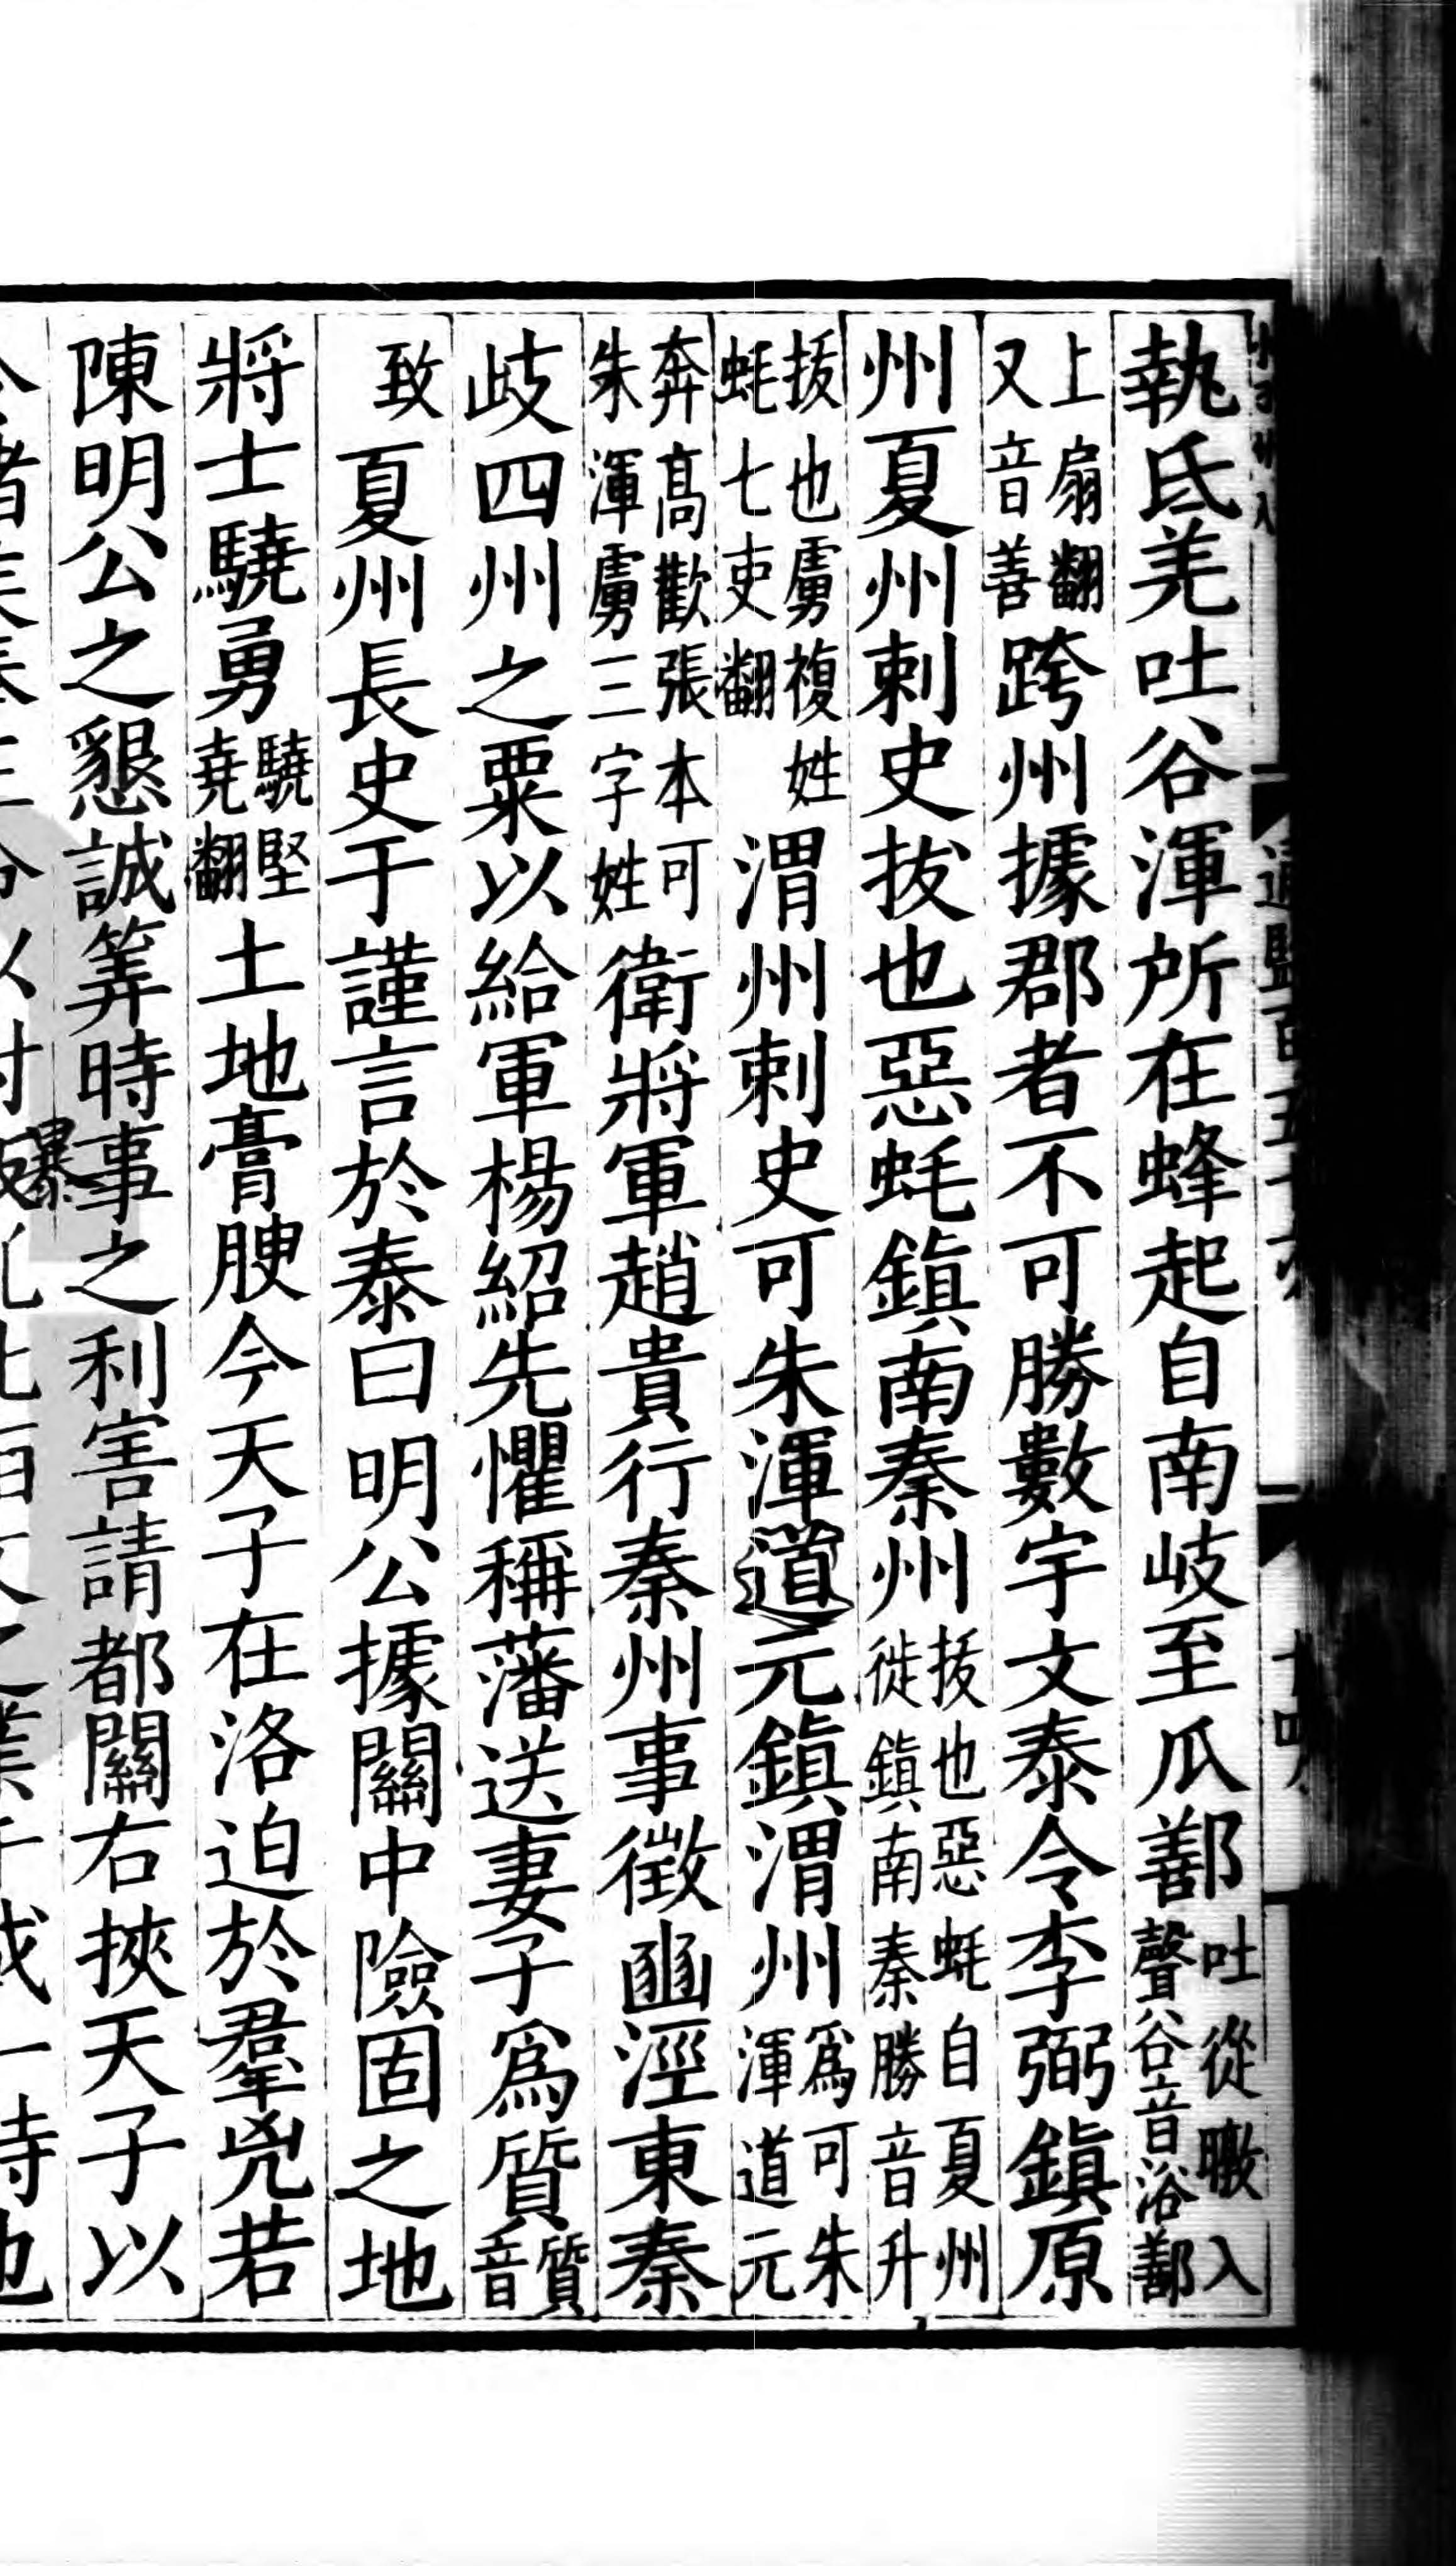 執氐羌吐谷渾所在蜂起自南岐至瓜鄯吐從暾入聲谷音浴鄯
上扇翻又音善跨州據郡者不可勝數宇文泰令李弼鎮原
州夏州刺史拔也惡蚝鎮南秦州拔也惡蚝自夏州徙鎮南秦勝音升
拔也虜複姓蚝七吏翻渭州刺史可朱渾道元鎮渭州為可朱渾道元
奔高歡張本可朱渾虜三字姓衛將軍趙貴行秦州事徵豳涇東秦
歧四州之粟以給軍楊紹先懼稱藩送妻子為質質音
致夏州長史于謹言於泰曰明公據關中險固之地
將士驍勇驍堅堯翻土地膏腴今天子在洛迫於羣兇若
陳明公之懇誠筭時事之利害請都關右挾天子以